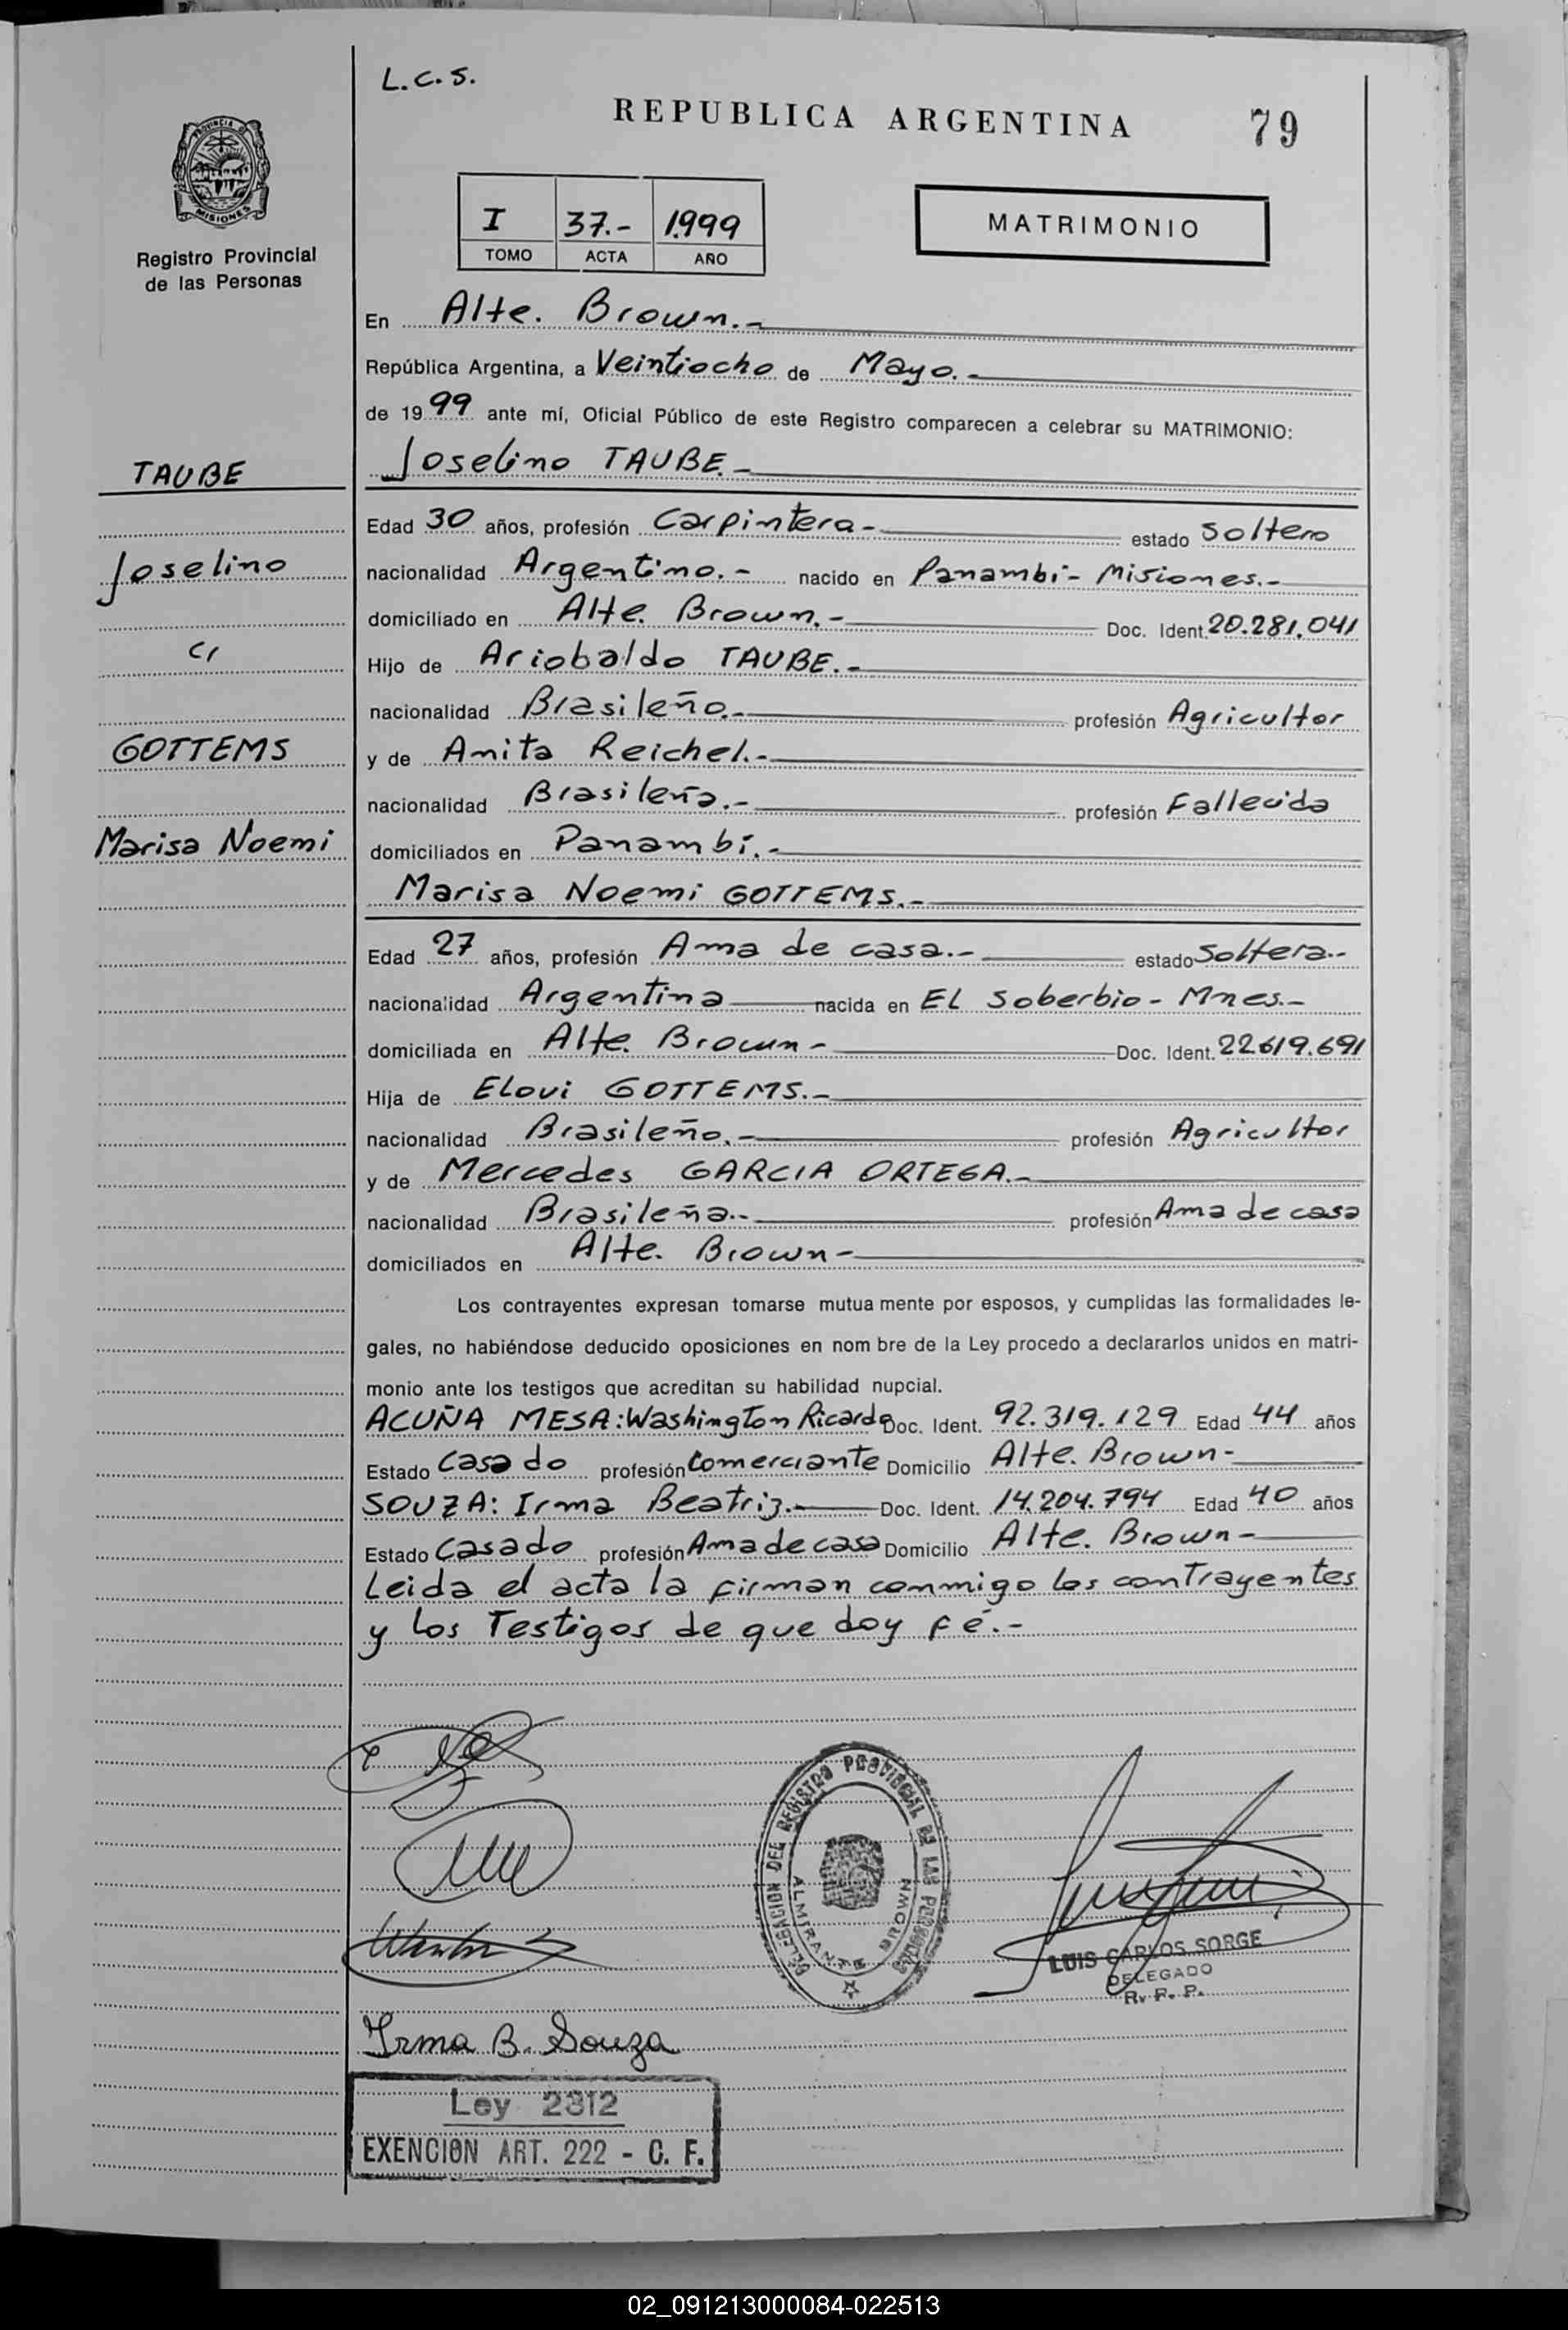 L.C.S.
REPUBLICA ARGENTINA
79
PROVINCIA DE
MISIONES
Registro Provincial
de las Personas
I 37.- 1.999
TOMO ACTA AÑO
MATRIMONIO
En Alte. Brown.-
República Argentina, a Veintiocho de Mayo.-
de 19 99 ante mí, Oficial Público de este Registro comparecen a celebrar su MATRIMONIO:
TAUBE
Joselino
c/
GOTTEMS
Marisa Noemi
Joselino TAUBE.-
Edad 30 años, profesión Carpintera.- estado Soltero
nacionalidad Argentino.- nacido en Panambi- Misiones.-
domiciliado en Alte. Brown.- Doc. Ident. 20.281.041
Hijo de Ariobaldo TAUBE.-
nacionalidad Brasileño.- profesión Agricultor
y de Anita Reichel.-
nacionalidad Brasileña.- profesión Fallecida
domiciliados en Panambí.-
Marisa Noemi GOTTEMS.-
Edad 27 años, profesión Ama de casa.- estado Soltera.-
nacionalidad Argentina nacida en EL Soberbio - Mnes.-
domiciliada en Alte. Brown - Doc. Ident. 22.619.691
Hija de Elovi GOTTEMS.-
nacionalidad Brasileño.- profesión Agricultor
y de Mercedes GARCIA ORTEGA.-
nacionalidad Brasileña.- profesión Ama de casa
domiciliados en Alte. Brown -
Los contrayentes expresan tomarse mutua mente por esposos, y cumplidas las formalidades le-
gales, no habiéndose deducido oposiciones en nom bre de la Ley procedo a declararlos unidos en matri-
monio ante los testigos que acreditan su habilidad nupcial.
ACUÑA MESA: Washington Ricardo Doc. Ident. 92.319.129 Edad 44 años
Estado Casado profesión Comerciante Domicilio Alte. Brown -
SOUZA: Irma Beatriz.- Doc. Ident. 14.204.794 Edad 40 años
Estado Casado profesión Ama de casa Domicilio Alte. Brown -
Leida el acta la firman conmigo los contrayentes
y los Testigos de que doy fé.-
DELEGACION DEL REGISTRO PROVINCIAL DE LAS PERSONAS
ALMIRANTE BROWN
LUIS CARLOS SORGE
DELEGADO
R. P. P.
Irma B. Souza
Ley 2312
EXENCION ART. 222 - C. F.
02_091213000084-022513